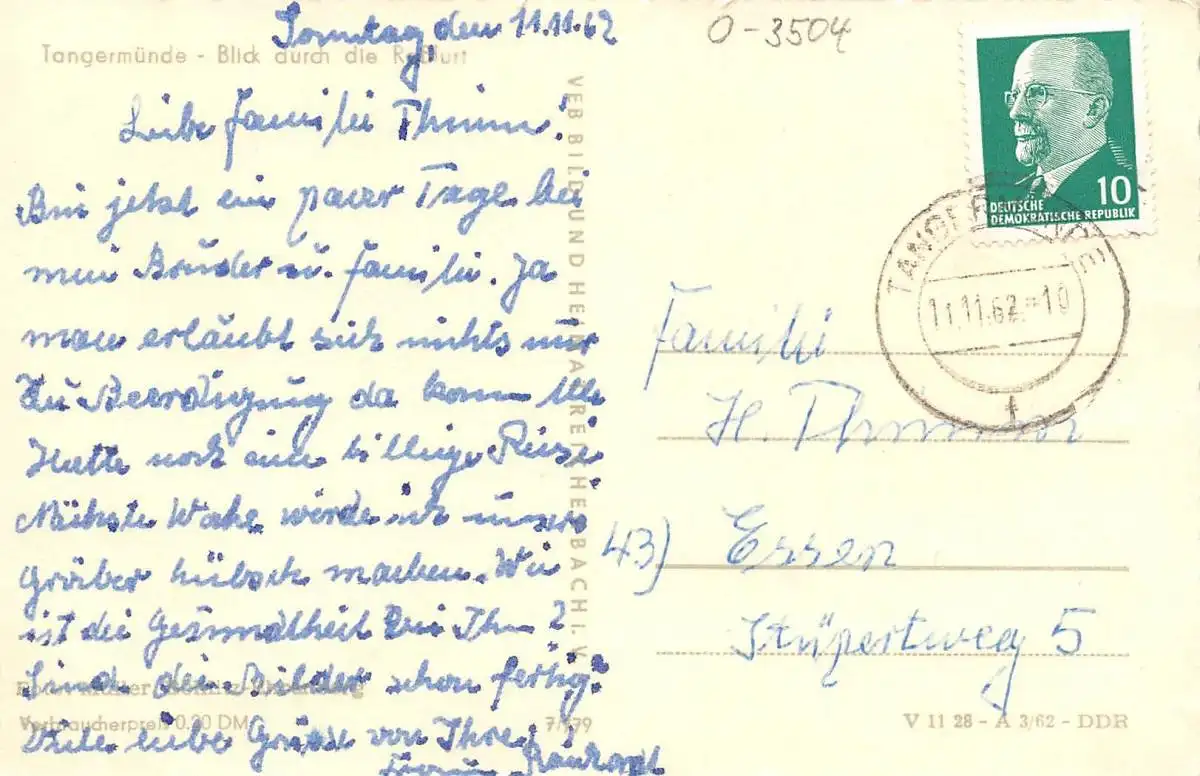 Sonntag, den 11.11.62
O-3504
Tangermünde - Blick durch die Roßfurt
Liebe Familie Thimm!
Bin jetzt ein paar Tage bei
mein Bruder u. Familie. Ja
man erläubt sich nichts nur
zu Beerdigung da kann
Hatte noch eine billige Reise
Nächste Woche würde ich unsere
Gräber hübsch machen. Wie
ist die Gesundheit bei Ihn?
Sind die Bilder schon fertig?
Viele liebe Grüße von Ihre
Verbraucherpreis 0.20 DM
VEB BILD UND HEIMAT REICHENBACH I. V.
DEUTSCHE
DEMOKRATISCHE REPUBLIK
10
TANGERMÜNDE
11.11.62.-10
Familie
H. Thimm
43) Essen
Stüpertweg 5
V 11 28 - A 3/62 - DDR